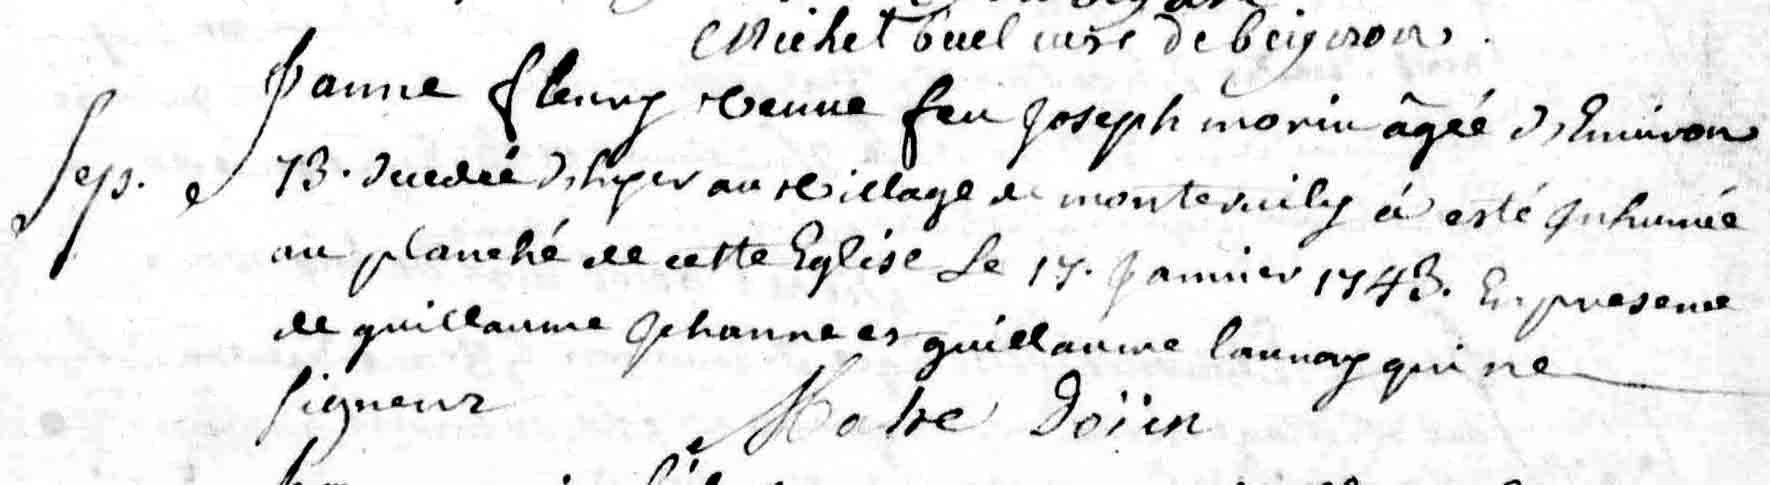 Michel buel curé de beignon.
Janne fleury veuve feu joseph morin âgée d'Environ
Sep. 73. decedée d'hyer au village de montervily á esté jnhumée
au planché de cette Eglise Le 17. janvier 1743. En presence
de guillaume jehanne et guillaume launay qui ne
signent
Doïen